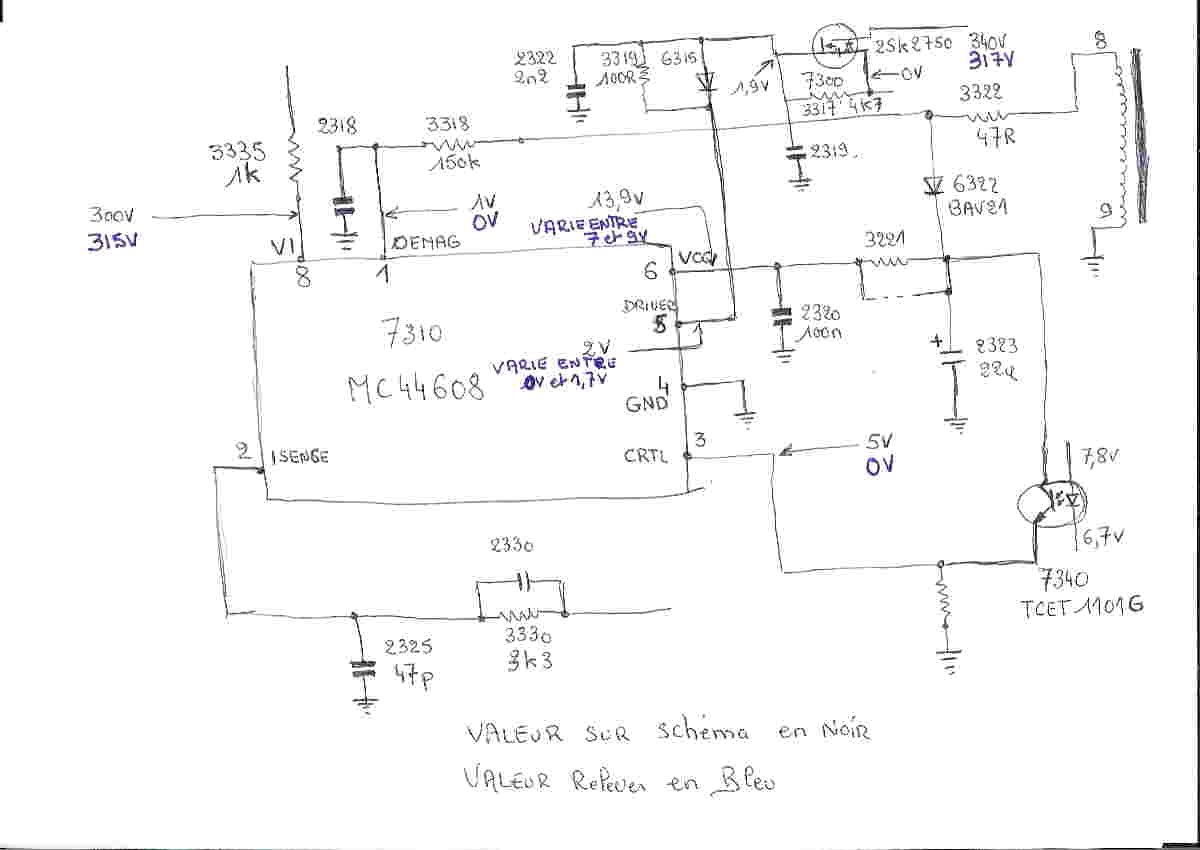 2322
2n2
3319
100R
6315
1,9V
2SK2750
7300
0V
3317 4K7
340V
317V
8
3322
47R
2318
3318
150k
3335
1k
2319
6322
BAV21
9
300V
315V
1V
0V
13,9V
VARIE ENTRE
7 et 9V
VI
8
1
DEMAG
6
VCC
3221
DRIVER
5
7310
MC44608
2V
VARIE ENTRE
0V et 1,7V
2320
100n
+
2323
4
GND
2
ISENSE
CRTL
3
5V
0V
7,8V
6,7V
7340
TCET1101G
2330
3330
3k3
2325
47p
VALEUR SUR Schéma en NOIR
VALEUR Relever en Bleu